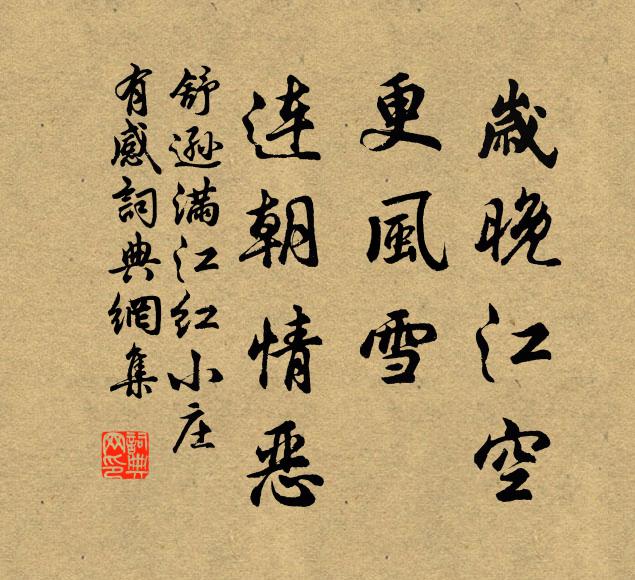 歲晚江空
更風雪
連朝情惡
舒遜滿江红小庄
有感詞典網集
詞典
网印